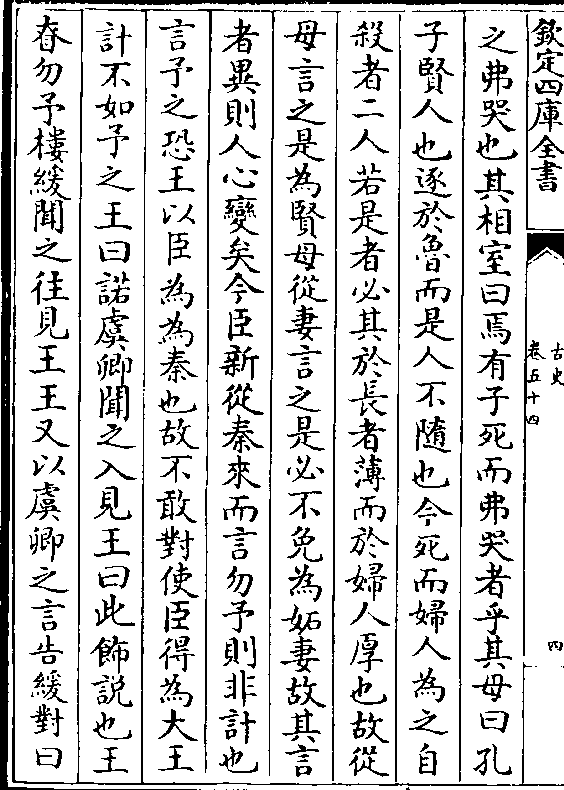 欽定四庫全書
古史
卷五十四
四
之弗哭也其相室曰焉有子死而弗哭者乎其母曰孔
子賢人也逐於魯而是人不隨也今死而婦人為之自
殺者二人若是者必其於長者薄而於婦人厚也故從
母言之是為賢母從妻言之是必不免為妬妻故其言
者異則人心變矣今臣新從秦來而言勿予則非計也
言予之恐王以臣為為秦也故不敢對使臣得為大王
計不如予之王曰諾虞卿聞之入見王曰此飾説也王
眘勿予樓緩聞之往見王王又以虞卿之言告緩對曰